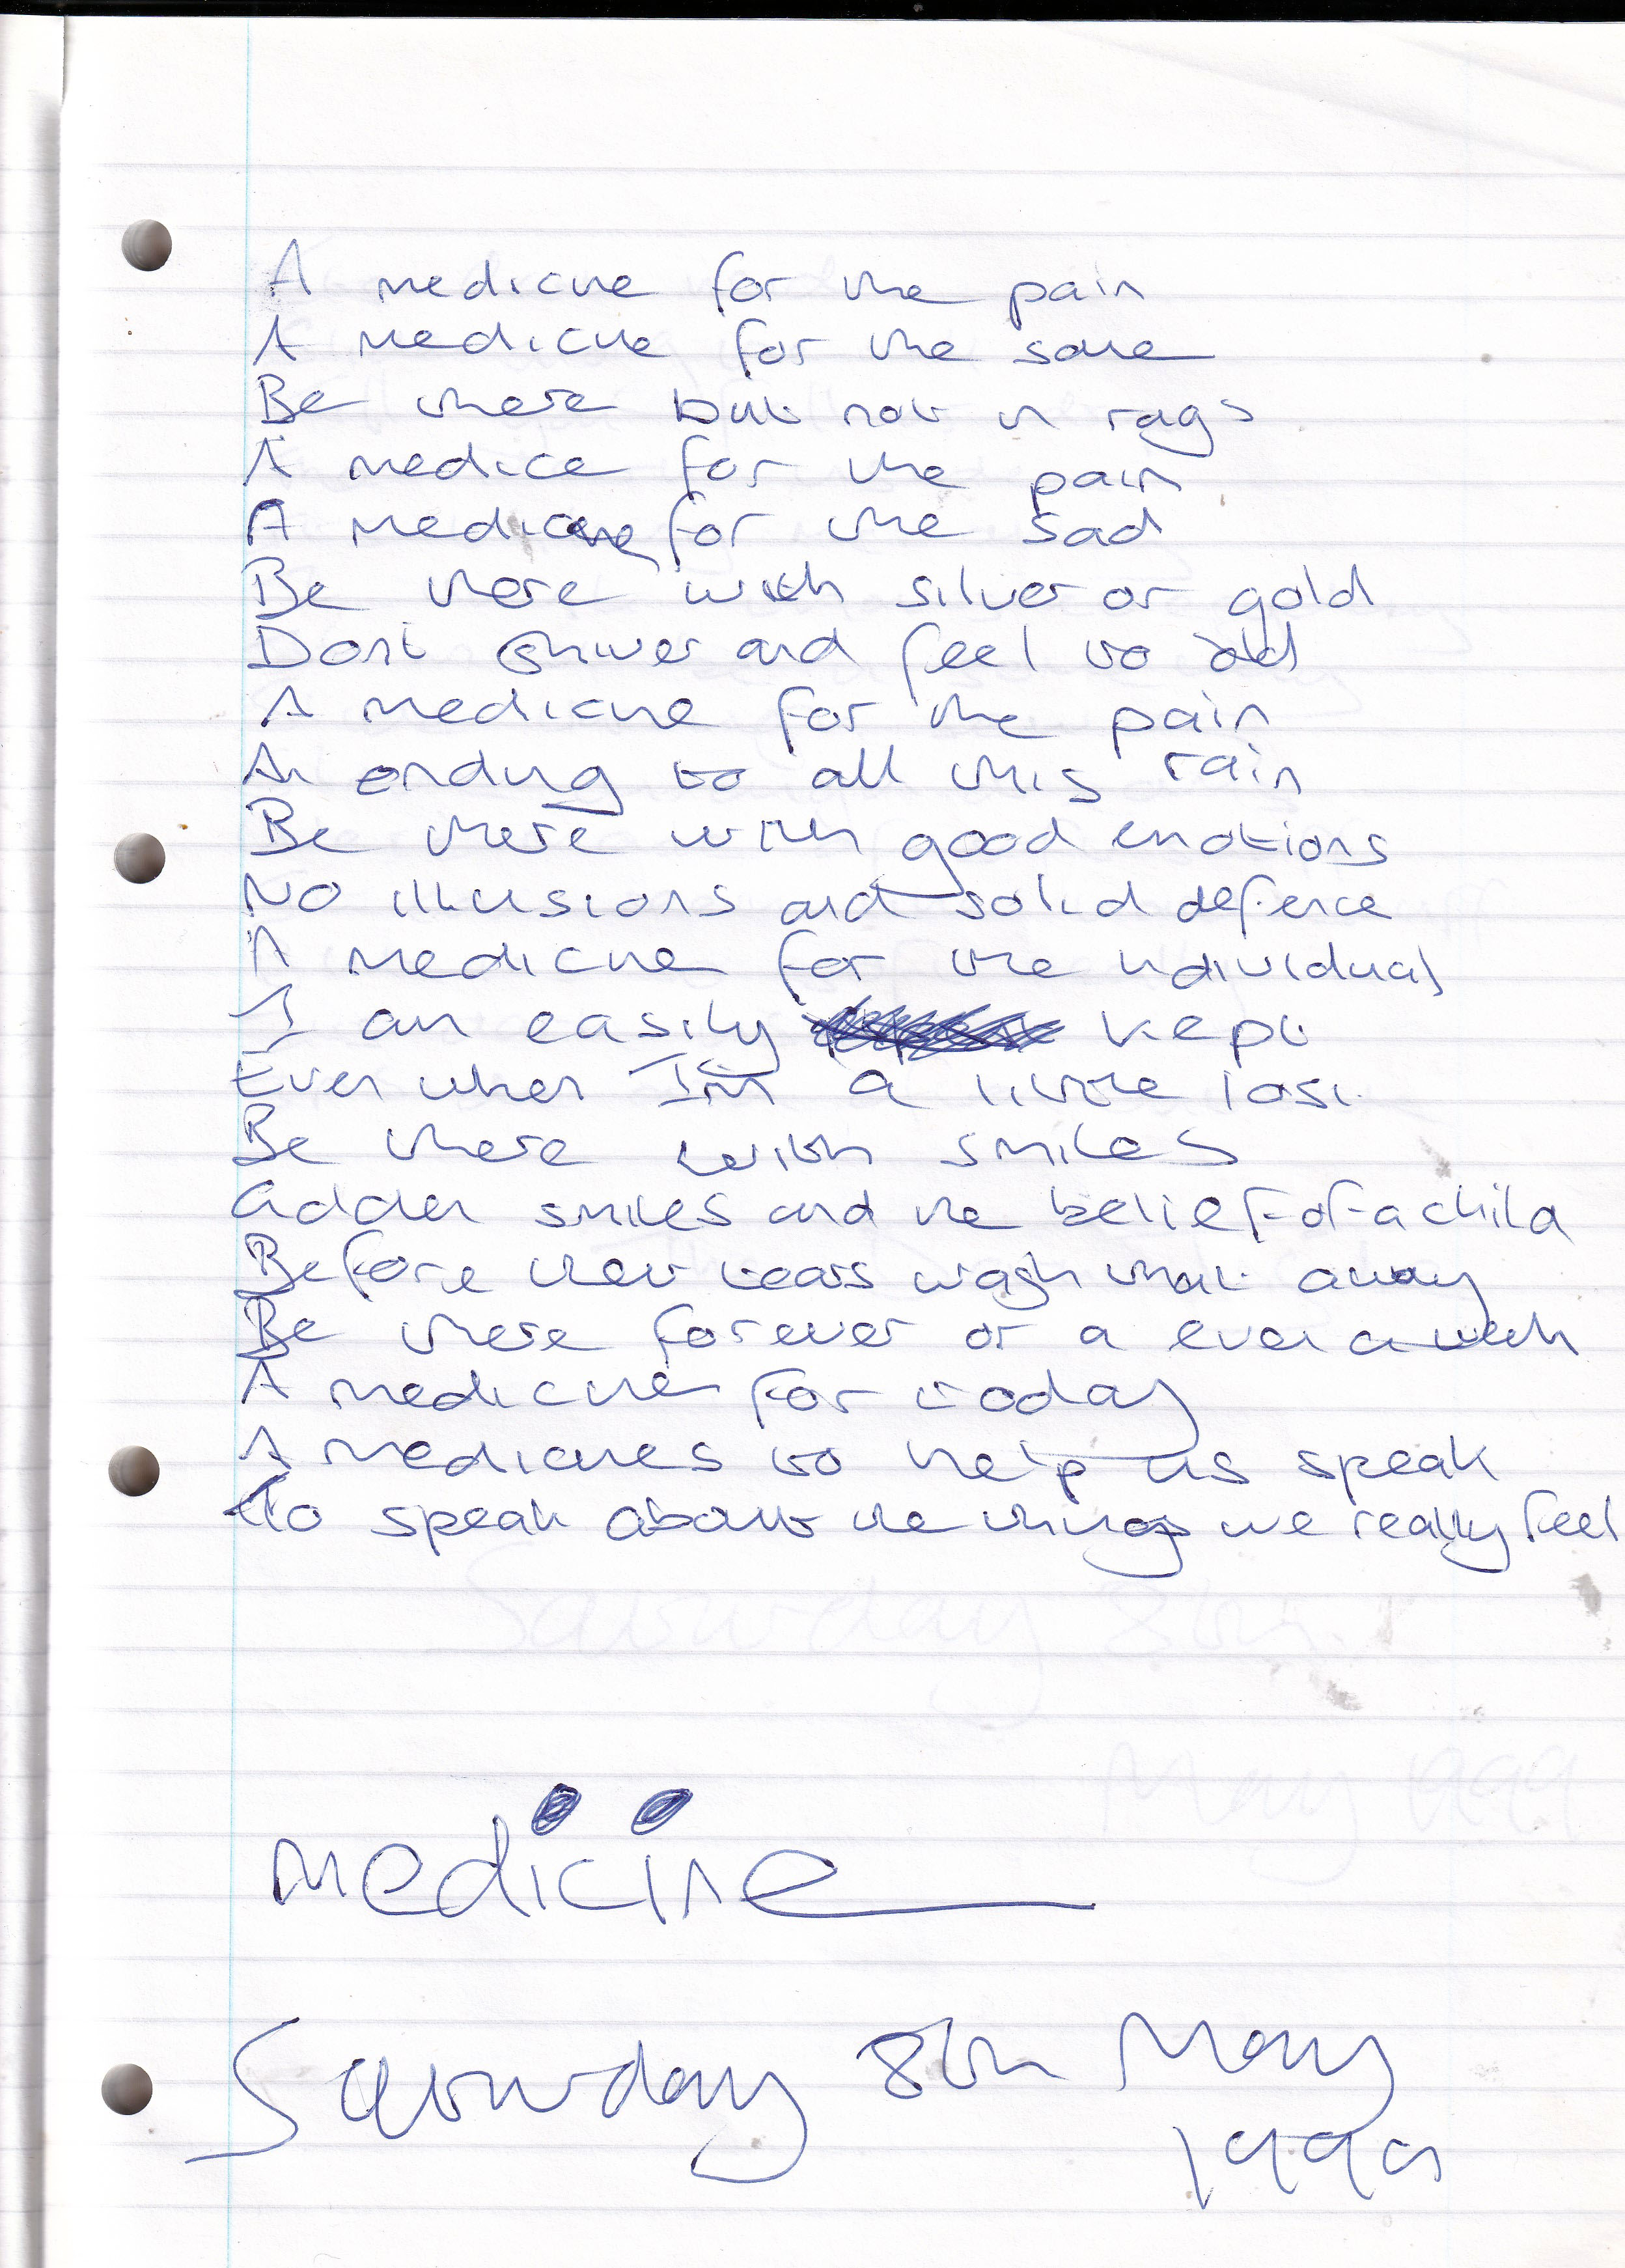 A medicine for the pain
A medicine for the sane
Be there but not in rags
A medice for the pain
A medicine for the sad
Be there with silver or gold
Dont shiver and feel to old
A medicine for the pain
An ending to all this rain
Be there with good emotions
No illusions and solid defence
A medicine for the individual
I am easily kept
Even when I'm a little lost.
Be there with smiles
smiles and the belief of a child
Before their tears wash that away
Be there forever or a even a week
A medicine for today
A medicines to help us speak
To speak about the things we really feel
Medicine
Saturday 8th May
1999